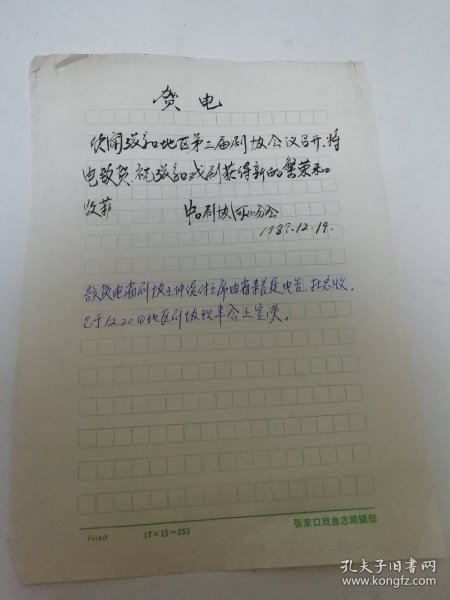 贺电
欣闻张家口地区第二届剧协会议召开，特
电致贺，祝张家口戏剧获得新的繁荣和
收获
中国剧协河北分会
1987.12.19.
贺电省剧协主席由省来电告，杜忠收，
已于12.20日地区剧协理事会上宣读。
17×15=255
张家口戏曲志编辑部
孔夫子旧书网
kongfz.com